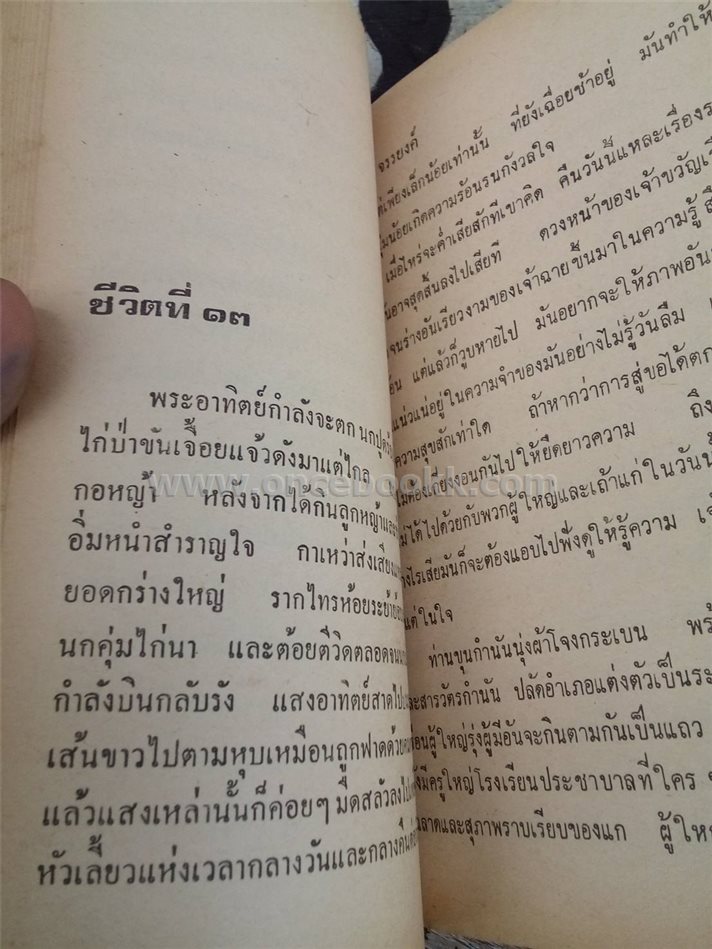 ชีวิตที่ ๑๓
พระอาทิตย์กำลังจะตก
ไก่ป่าขันเจื้อยแจ้วดังมาแต่ไกล
กอหญ้า หลังจากได้กินลูกหญ้าและ
อิ่มหนำสำราญใจ กาเหว่าส่งเสียง
ยอดกร่างใหญ่ รากไทรห้อยระย้า
นกคุ่มไก่นา และต้อยตีวิดตลอดจน
กำลังบินกลับรัง แสงอาทิตย์สาดไป
เส้นขาวไปตามหุบเหมือนถูกฟาดด้วย
แล้วแสงเหล่านั้นก็ค่อยๆ มืดสลัวลงไป
หัวเลี้ยวแห่งเวลากลางวันและกลางคืน
www.oncebookk.com
จรรยงค์
เพียงเล็กน้อยเท่านั้น ที่ยังเฉื่อยช้าอยู่ มันทำให้
น้อยเกิดความร้อนรนกังวลใจ
เมื่อไหร่จะค่ำเสียสักทีเขาคิด คืนวันนี้แหละเรื่อง
อาจสุดสิ้นลงไปเสียที ดวงหน้าของเจ้าขวัญ
จนร่างอันเรียวงามของเจ้าฉายขึ้นมาในความรู้
แต่แล้วก็วูบหายไป มันอยากจะให้ภาพอัน
แน่วแน่อยู่ในความจำของมันอย่างไม่รู้วันลืม
ความสุขสักเท่าใด ถ้าหากว่าการสู่ขอได้ตก
ต้องเกี่ยงงอนกันไปให้ยืดยาวความ ถึง
ไม่ได้ไปด้วยกับพวกผู้ใหญ่และเถ้าแก่ในวันนั้น
ไรเสียมันก็จะต้องแอบไปฟังดูให้รู้ความ
แต่ในใจ
ท่านขุนกำนันนุ่งผ้าโจงกระเบน
และสารวัตรกำนัน ปลัดอำเภอแต่งตัวเป็น
ผู้ใหญ่รุ่งผู้มีอันจะกินตามกันเป็นแถว
มีครูใหญ่โรงเรียนประชาบาลที่ใคร
ฉลาดและสุภาพราบเรียบของแก